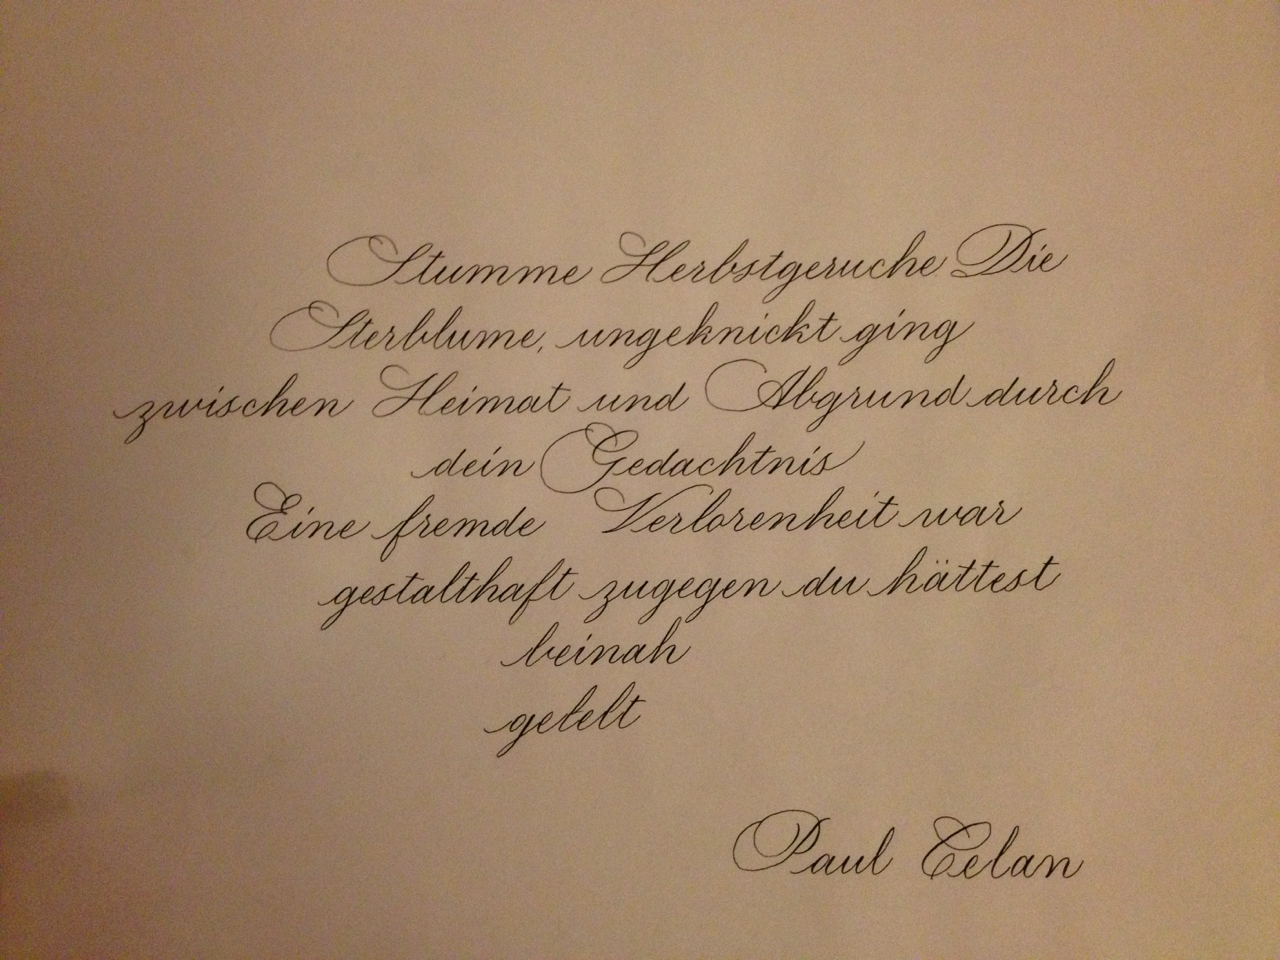 Stumme Herbstgeruche. Die
Sterblume, ungeknickt ging
zwischen Heimat und Abgrund durch
dein Gedachtnis
Eine fremde Verlorenheit war
gestalthaft zugegen du hättest
beinah
gelelt
Paul Celan